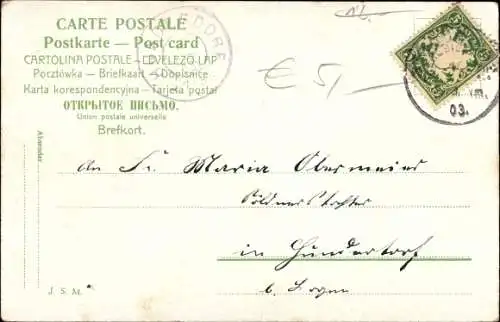 CARTE POSTALE
Postkarte — Post card
CARTOLINA POSTALE — LEVELEZŐ-LAP
Pocztówka — Briefkaart — Dopisnice
Karta korespondencyjna — Tarjeta postal
ОТКРЫТОЕ ПИСЬМО.
Union postale universelle
Brefkort.
€ 5,-
03.
Absender
An Fr. Maria Obermeier
Söldnerstochter
in Hunderdorf
b. Bogen
J. S. M.